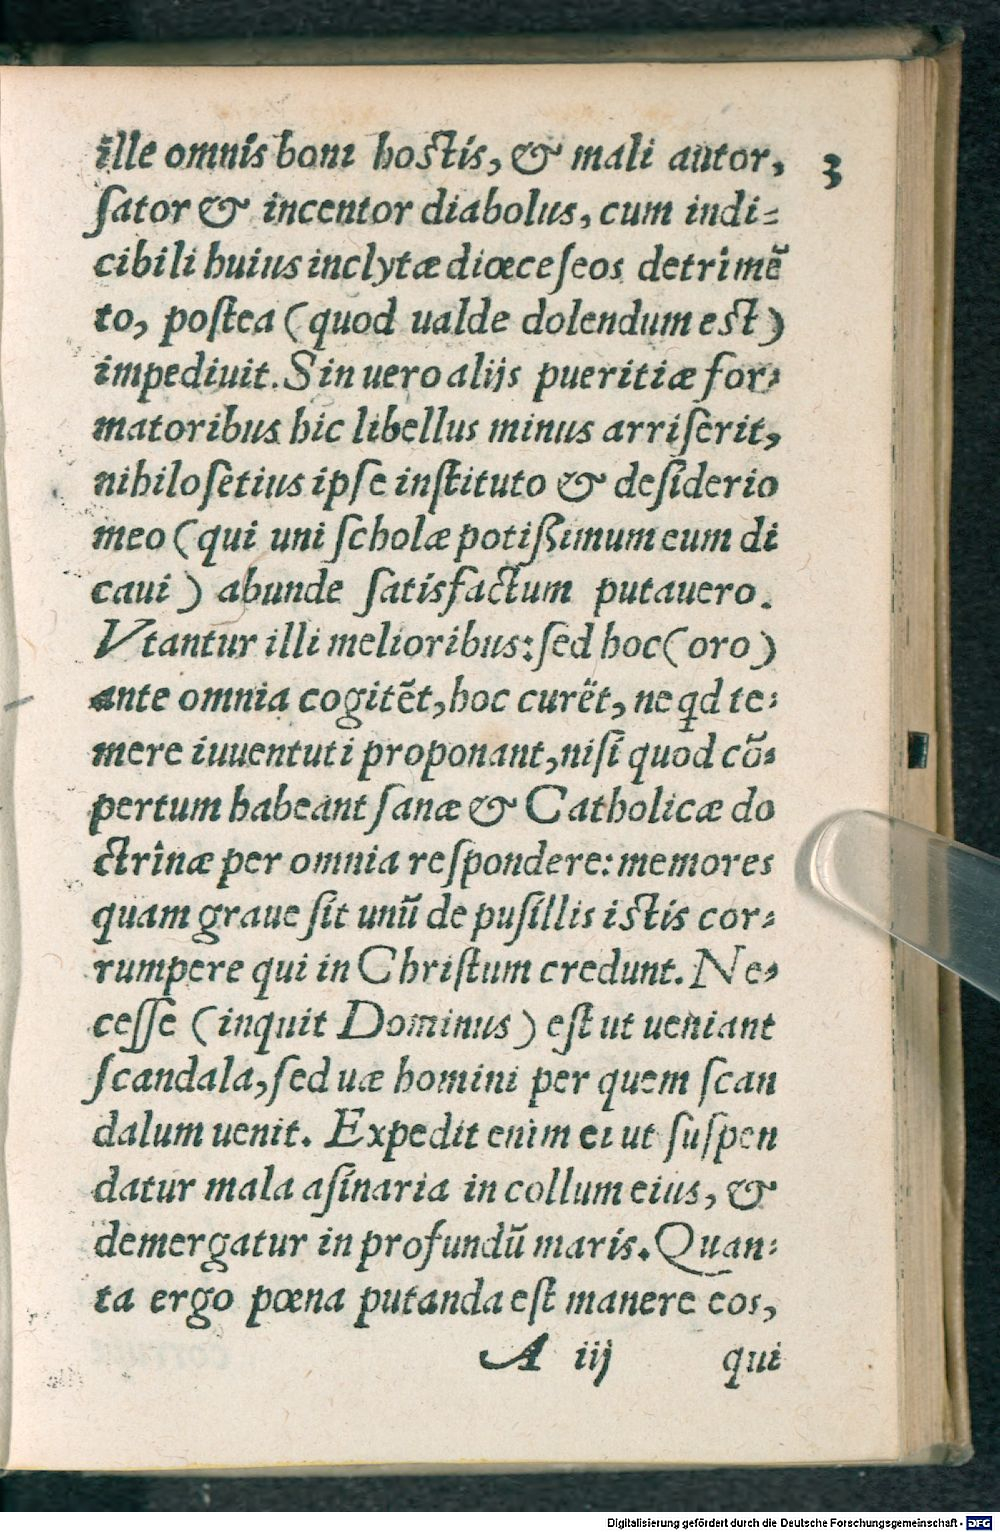 ille omnis boni hostis, & mali autor, 3
ſator & incentor diabolus, cum indi-
cibili huius inclytæ diœceſeos detrimẽ
to, poſtea (quod ualde dolendum eſt)
impediuit. Sin uero alijs pueritiæ for-
matoribus hic libellus minus arriſerit,
nihiloſetius ipſe inſtituto & deſiderio
meo (qui uni ſcholæ potißimum eum di
caui) abunde ſatisfactum putauero.
Vtantur illi melioribus: ſed hoc (oro)
ante omnia cogitẽt, hoc curẽt, ne qd te-
mere iuuentuti proponant, niſi quod cõ-
pertum habeant ſanæ & Catholicæ do
ctrinæ per omnia reſpondere: memores
quam graue ſit unũ de puſillis iſtis cor-
rumpere qui in Chriſtum credunt. Ne-
ceſſe (inquit Dominus) eſt ut ueniant
ſcandala, ſed uæ homini per quem ſcan
dalum uenit. Expedit enim ei ut ſuſpen
datur mala aſinaria in collum eius, &
demergatur in profundũ maris. Quan-
ta ergo pœna putanda eſt manere eos,
A iij qui
Digitalisierung gefördert durch die Deutsche Forschungsgemeinschaft - DFG